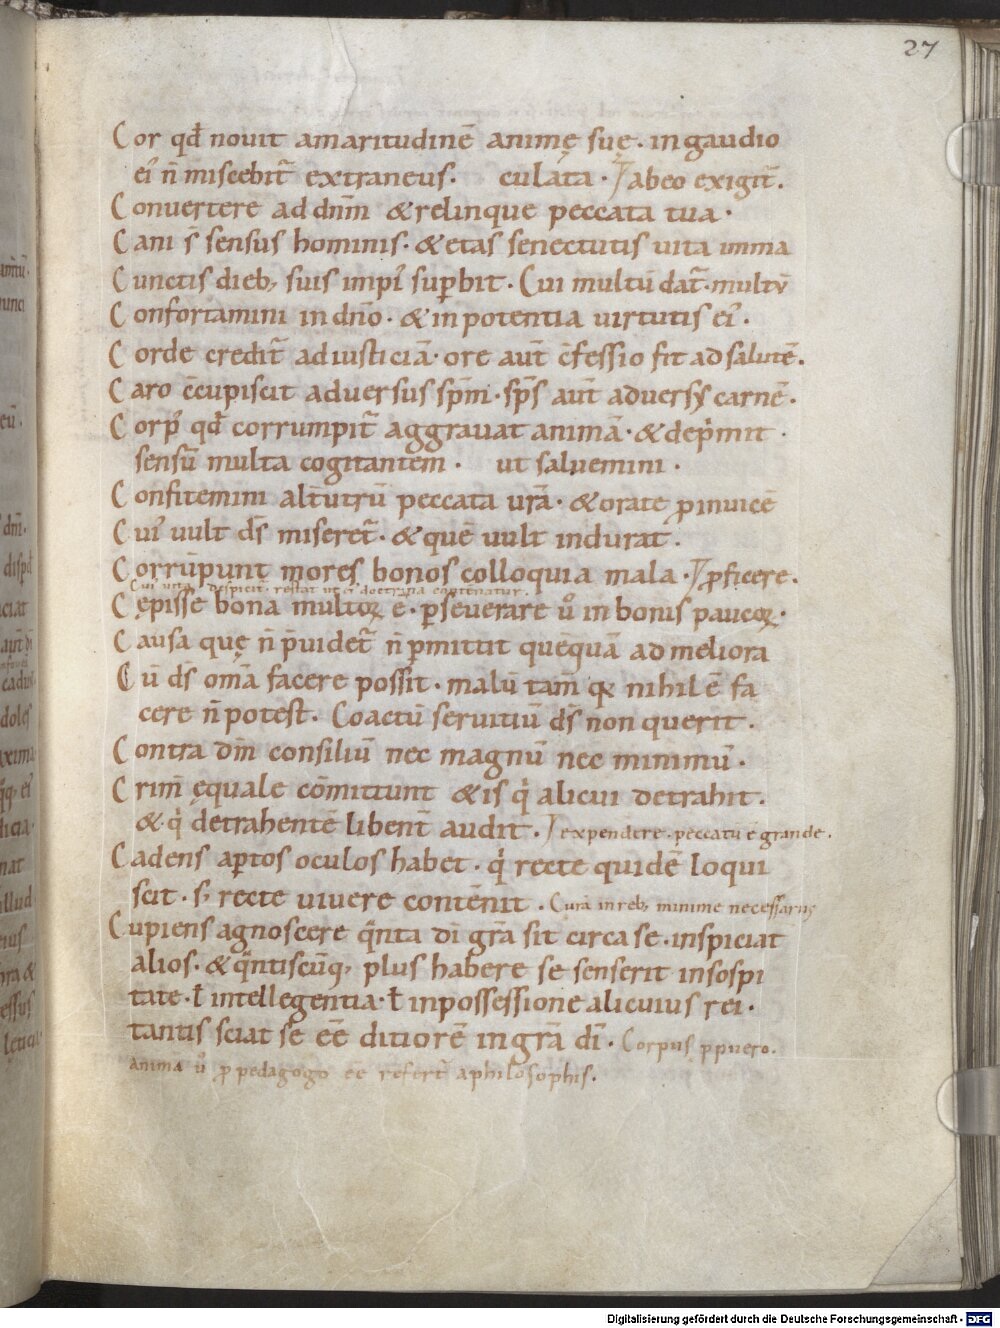 27
Cor qđ nouit amaritudinē animę suę. in gaudio
ei᾽ n̄ miscebit᷑ extraneus. culata. ab eo exigit᷑.
Conuertere ad dn̄m & relinque peccata tua.
Cani s̄ sensus hominis. & etas senectutis uita inma
Cunctis dieb; suis impi᾽ supbit. Cui multū dat᷑. multū
Confortamini in dn̄o. & in potentia uirtutis ei᾽.
Corde credit᷑ ad iusticiā. ore aut̄ c̄fessio fit ad salutē.
Caro c̄cupiscit aduersus sp̄m. sp̄s aut̄ aduersus carnē.
Corp᾽ qđ corrumpit᷑ aggrauat animā. & dep̄mit
sensū multa cogitantem. ut saluemini.
Confitemini alt̄utrū peccata ur̄a. & orate p inuicē
Cui᾽ uult ds̄ miseret᷑. & quē uult indurat.
Corrūpunt mores bonos colloquia mala. pficere.
Cui uita despicit᷑. restat ut ei᾽ doctrina contēnatur.
Cępisse bona multoꝝ ē. pseuerare u᷎ in bonis paucoꝝ.
Causa quę n̄ p̄uidet᷑ n̄ pmittit quēquā ad meliora
Cū ds̄ om̄a facere possit. malū tam̄ quod nihil ē fa
cere n̄ potest. Coactū seruitiū ds̄ non querit.
Contra dm̄ consiliū nec magnū nec minimū.
Crim̄ ęquale cōmittunt & is q̇ alicui detrahit.
& q̇ detrahentē libent̄ audit. expendere. peccatū ē grande.
Cadens aptos oculos habet. q̇ recte quidē loqui
scit. s; recte uiuere contēnit. Cura in reb; minime necessariis
Cupiens agnoscere qnta di᷎ gr̄a sit circa se. inspiciat
alios. & qntiscūq; plus habere se senserit in sospi
tate. ł intellegentia. ł in possessione alicuius rei.
tantis sciat se eē ditiorē in gr̄a dī. Corpus p puero.
anima u᷎ p pedagogo eē refert᷑ a philosophis.
Digitalisierung gefördert durch die Deutsche Forschungsgemeinschaft - DFG